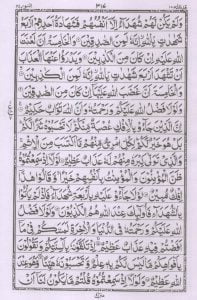 وَلَمْ يَكُنْ لَّهُمْ شُهَدَآءُ اِلَّآ اَنْفُسُهُمْ فَشَهَادَةُ اَحَدِهِمْ اَرْبَعُ
شَهٰدٰتٍۭ بِاللّٰهِ اِنَّهٗ لَمِنَ الصّٰدِقِيْنَ وَالْخَامِسَةُ اَنَّ لَعْنَتَ
اللّٰهِ عَلَيْهِ اِنْ كَانَ مِنَ الْكٰذِبِيْنَ وَيَدْرَؤُا عَنْهَا الْعَذَابَ
اَنْ تَشْهَدَ اَرْبَعَ شَهٰدٰتٍۭ بِاللّٰهِ اِنَّهٗ لَمِنَ الْكٰذِبِيْنَ
وَالْخَامِسَةَ اَنَّ غَضَبَ
اللّٰهِ عَلَيْهَآ اِنْ كَانَ مِنَ الصّٰدِقِيْنَ
وَلَوْلَا فَضْلُ اللّٰهِ عَلَيْكُمْ وَرَحْمَتُهٗ وَاَنَّ اللّٰهَ تَوَّابٌ حَكِيْمٌ
اِنَّ الَّذِيْنَ جَآءُوْ بِالْاِفْكِ عُصْبَةٌ مِّنْكُمْ لَا تَحْسَبُوْهُ شَرًّا لَّكُمْ
بَلْ هُوَ خَيْرٌ لَّكُمْ لِكُلِّ امْرِئٍ مِّنْهُمْ مَّا اكْتَسَبَ مِنَ الْاِثْمِ
وَالَّذِيْ تَوَلّٰى كِبْرَهٗ مِنْهُمْ لَهٗ عَذَابٌ عَظِيْمٌ لَوْلَآ اِذْ سَمِعْتُمُوْهُ
ظَنَّ الْمُؤْمِنُوْنَ وَالْمُؤْمِنٰتُ بِاَنْفُسِهِمْ خَيْرًا وَّقَالُوْا هٰذَآ
اِفْكٌ مُّبِيْنٌ لَوْلَا جَآءُوْ عَلَيْهِ بِاَرْبَعَةِ شُهَدَآءَ فَاِذْ لَمْ يَاْتُوْا
بِالشُّهَدَآءِ فَاُولٰٓئِكَ عِنْدَ اللّٰهِ هُمُ الْكٰذِبُوْنَ وَلَوْلَا فَضْلُ
اللّٰهِ عَلَيْكُمْ وَرَحْمَتُهٗ فِي الدُّنْيَا وَالْاٰخِرَةِ لَمَسَّكُمْ فِيْ مَآ
اَفَضْتُمْ فِيْهِ عَذَابٌ عَظِيْمٌ اِذْ تَلَقَّوْنَهٗ بِاَلْسِنَتِكُمْ وَتَقُوْلُوْنَ
بِاَفْوَاهِكُمْ مَّا لَيْسَ لَكُمْ بِهٖ عِلْمٌ وَّتَحْسَبُوْنَهٗ هَيِّنًا وَّهُوَ عِنْدَ
اللّٰهِ عَظِيْمٌ وَلَوْلَآ اِذْ سَمِعْتُمُوْهُ قُلْتُمْ مَّا يَكُوْنُ لَنَآ اَنْ